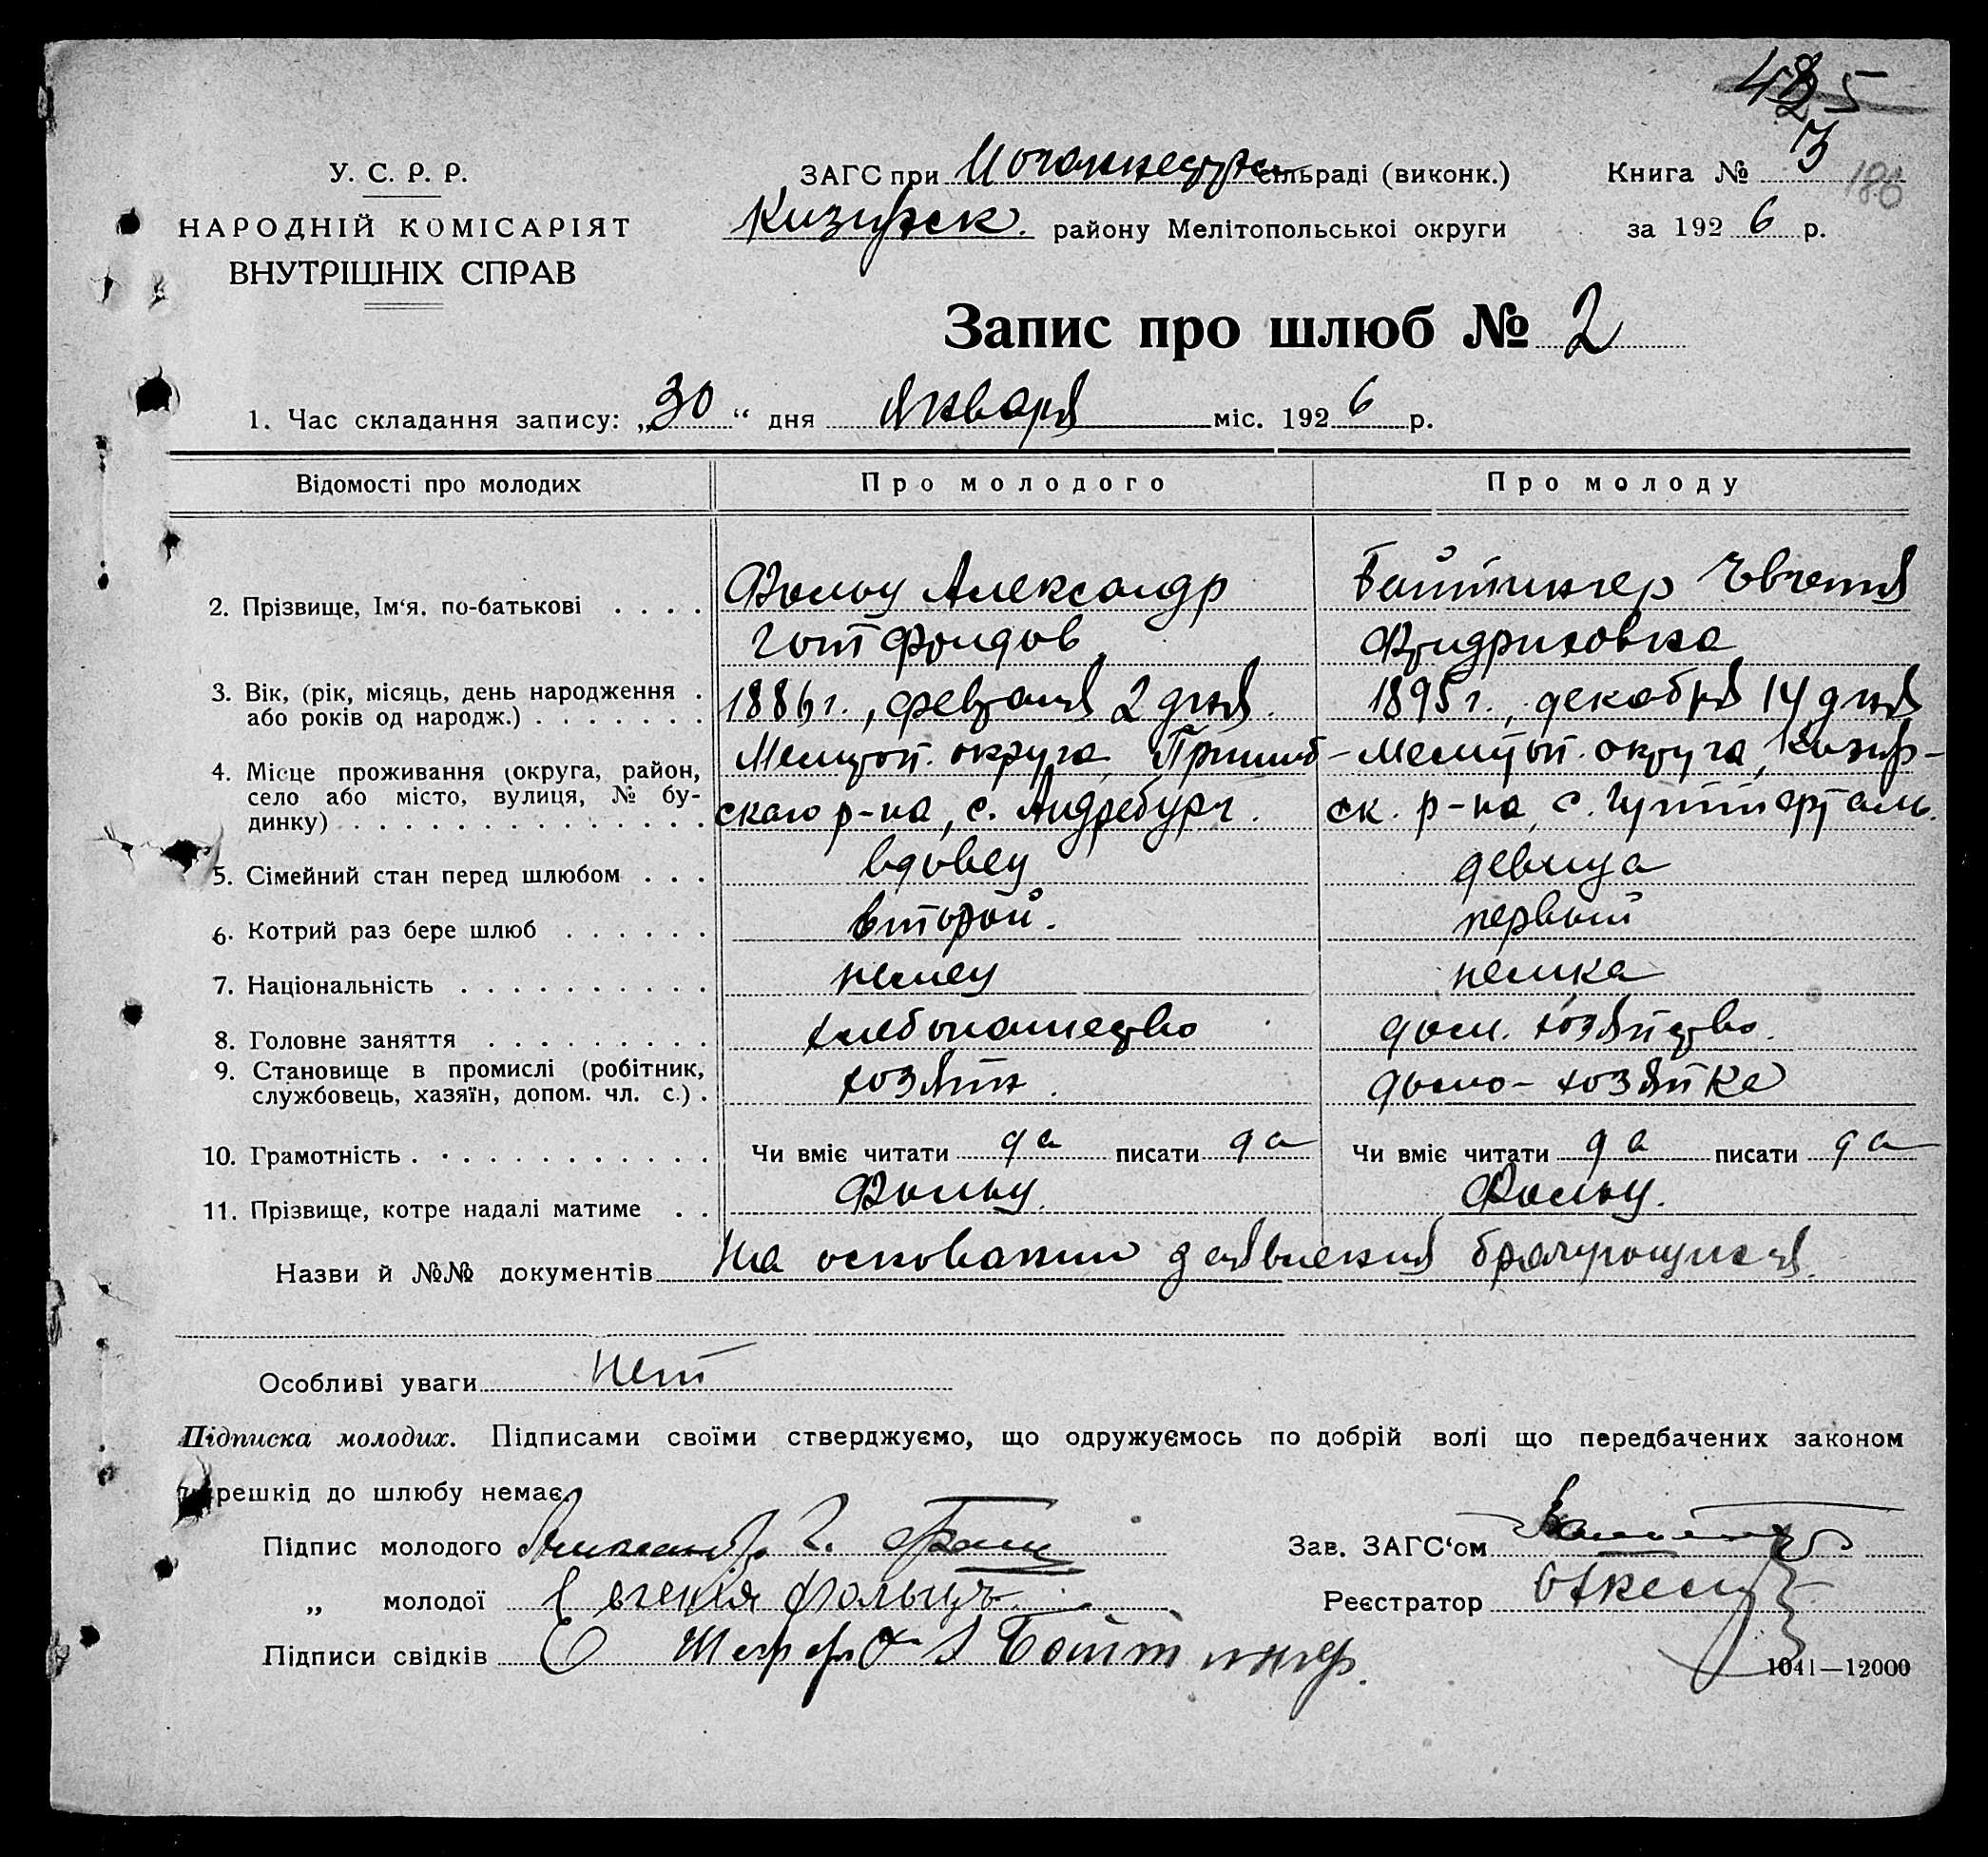 425
У. С. Р. Р.
НАРОДНІЙ КОМІСАРІЯТ
ВНУТРІШНІХ СПРАВ
ЗАГС при сільраді (виконк.)
Кизирск. району Мелітопольської округи
Книга № 3
186
за 1926 р.
Запис про шлюб № 2
1. Час складання запису: „30“ дня Января міс. 1926 р.
Відомості про молодих Про молодого Про молоду
2. Прізвище, Ім‘я, по-батькові . . . . Фольц Александр Байтингер Евгения
Готфридов Фридриховна
3. Вік, (рік, місяць, день народження . 1886 г., февраля 2 дня. 1895 г., декабря 14 дня
або років од народж.) . . . . . . .
4. Місце проживання (округа, район, Мелитоп. округа, Пришиб- Мелитоп. округа, Кизир-
село або місто, вулиця, № бу-
динку) . . . . . . . . . . . . . . . ского р-на, с. Андребург. ск. р-на, с. Гуттерталь.
5. Сімейний стан перед шлюбом . . . вдовец девица
6. Котрий раз бере шлюб . . . . . . второй. первый
7. Національність . . . . . . . . . . немец немка
8. Головне заняття . . . . . . . . . хлебопашество дом. хозяйство.
9. Становище в промислі (робітник,
службовець, хазяїн, допом. чл. с.) . хозяин. домо-хозяйка
10. Грамотність . . . . . . . . . . . . Чи вміє читати да писати да Чи вміє читати да писати да
11. Прізвище, котре надалі матиме . . Фольц. Фольц.
Назви й №№ документів На основании заявления брачующихся.
Особливі уваги Нет
Підписка молодих. Підписами своїми стверджуємо, що одружуємось по добрій волі що передбачених законом
перешкід до шлюбу немає.
Підпис молодого Александр Г. Фольц
Зав. ЗАГС‘ом
„ молодої Евгения Фольцъ
Реєстратор
Підписи свідків Байтингер.
1041—12000